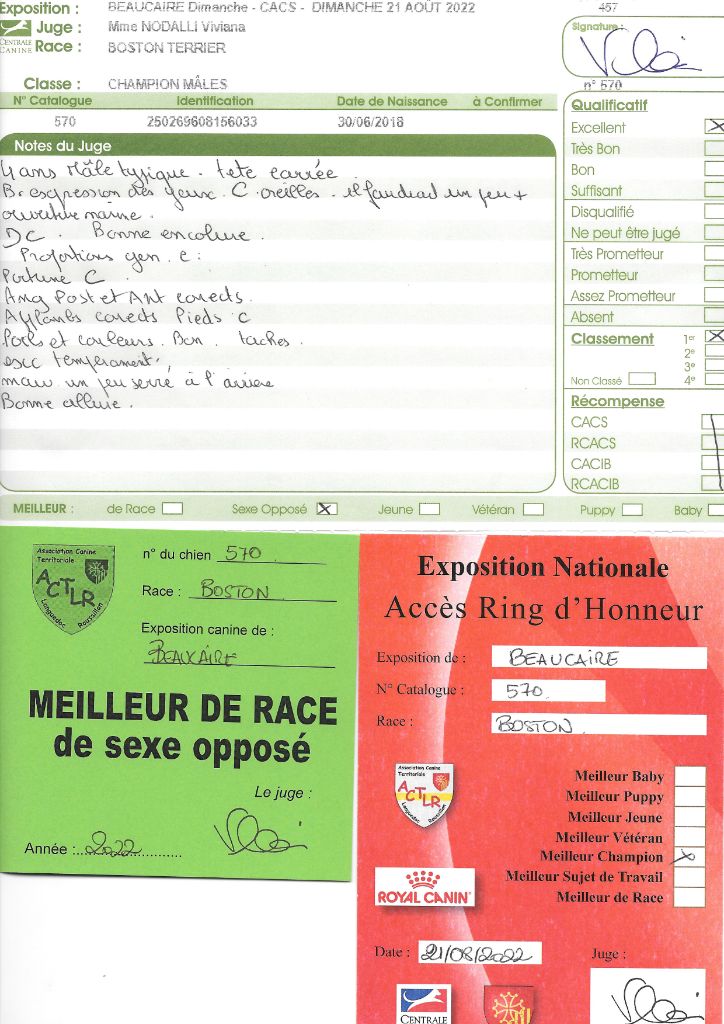 Exposition : BEAUCAIRE Dimanche - CACS - DIMANCHE 21 AOÛT 2022 457
Juge : Mme NODALLI Viviana
Signature :
CENTRALE
CANINE
Race : BOSTON TERRIER
Classe : CHAMPION MÂLES
n° 570
N° Catalogue Identification Date de Naissance à Confirmer
570 250269608156033 30/06/2018
Notes du Juge
4 ans Mâle typique. tete carrée
Br expression des yeux. C oreilles. il faudrad un peu +
ouverture
DC. Bonne encolure.
Proportions gen. c.
C
Ang Post et Ant corects.
corects Pieds c
Poils et couleurs. Bon. taches.
exc temperament.
un peu serré à l'arriere
Bonne allure.
Qualificatif
Excellent
Très Bon
Bon
Suffisant
Disqualifié
Ne peut être jugé
Très Prometteur
Prometteur
Assez Prometteur
Absent
Classement 1er
2e
3e
Non Classé 4e
Récompense
CACS
RCACS
CACIB
RCACIB
MEILLEUR : de Race Sexe Opposé Jeune Vétéran Puppy Baby
Association Canine
Territoriale
ACTLR
Languedoc Roussillon
n° du chien 570
Race : BOSTON
Exposition canine de :
BEAUCAIRE
MEILLEUR DE RACE
de sexe opposé
Le juge :
Année : 2022
Exposition Nationale
Accès Ring d'Honneur
Exposition de : BEAUCAIRE
N° Catalogue : 570
Race : BOSTON
Association Canine
Territoriale
ACTLR
Languedoc Roussillon
Meilleur Baby
Meilleur Puppy
Meilleur Jeune
Meilleur Vétéran
Meilleur Champion
Meilleur Sujet de Travail
Meilleur de Race
ROYAL CANIN
Date : 21/08/2022 Juge :
CENTRALE